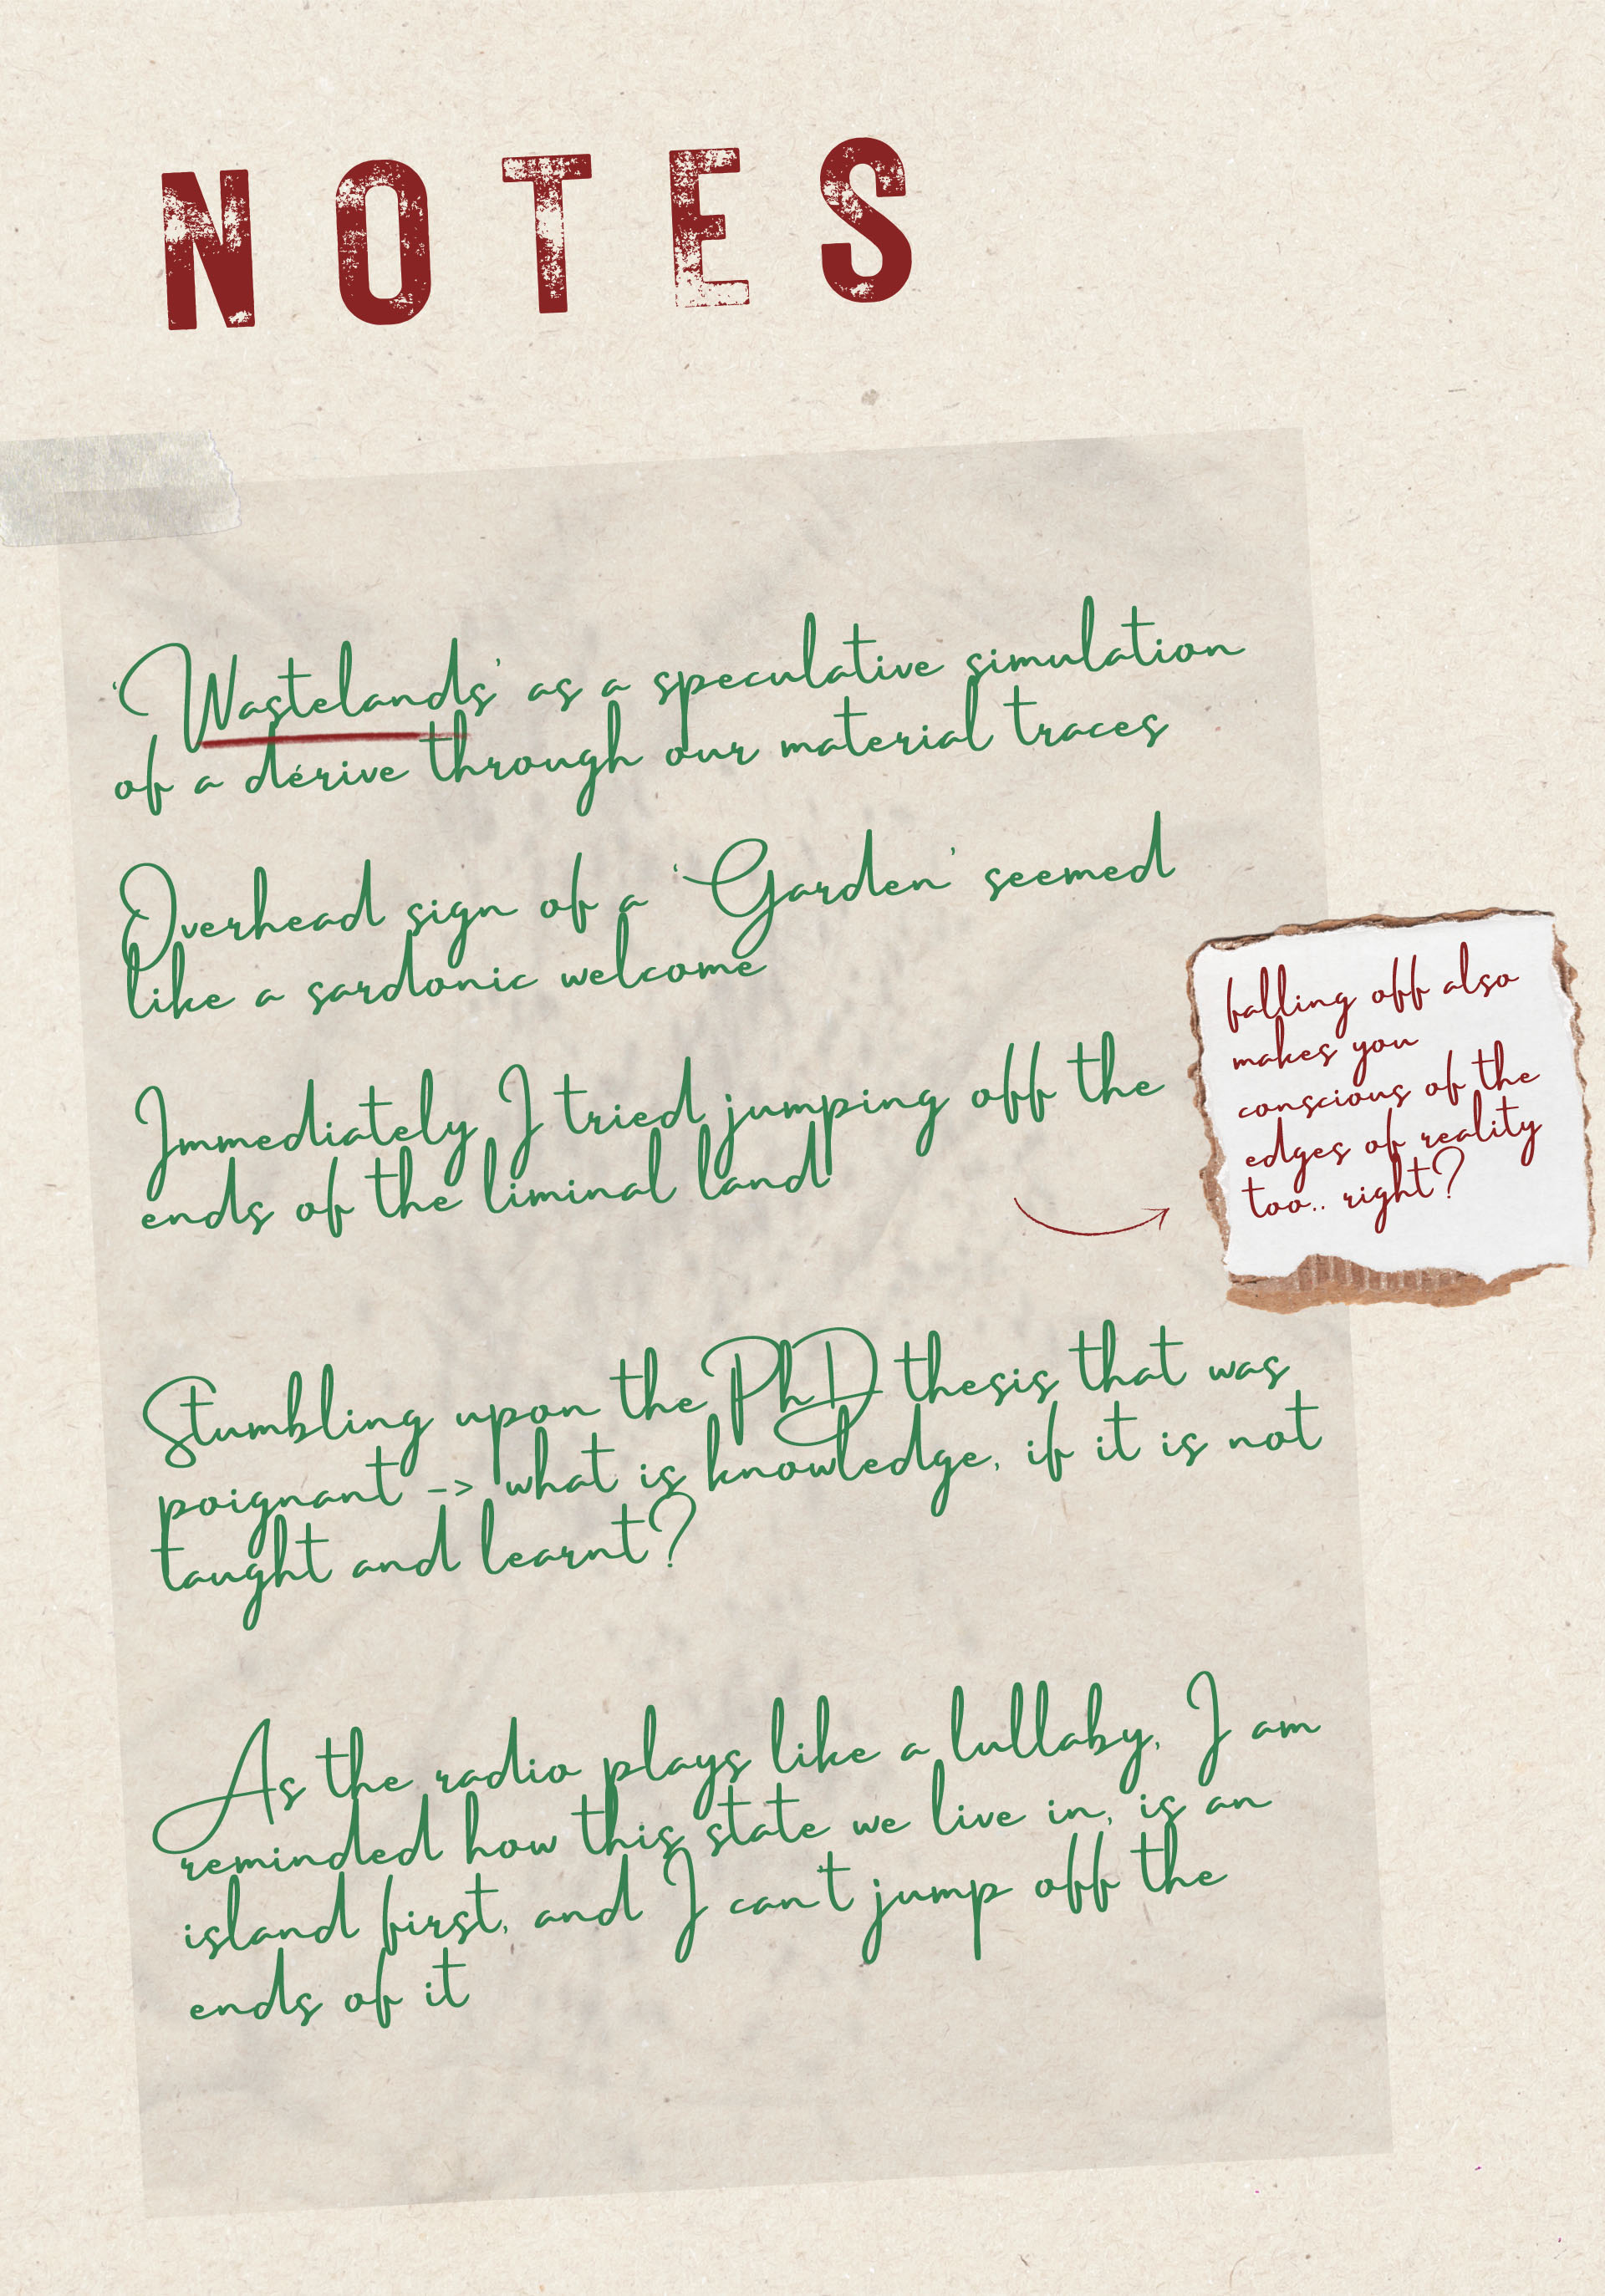 NOTES
'Wastelands' as a speculative simulation
of a dérive through our material traces
Overhead sign of a 'Garden' seemed
like a sardonic welcome
Immediately I tried jumping off the
ends of the liminal land
falling off also
makes you
conscious of the
edges of reality
too.. right?
Stumbling upon the PhD thesis that was
poignant -> what is knowledge, if it is not
taught and learnt?
As the radio plays like a lullaby, I am
reminded how this state we live in, is an
island first, and I can't jump off the
ends of it